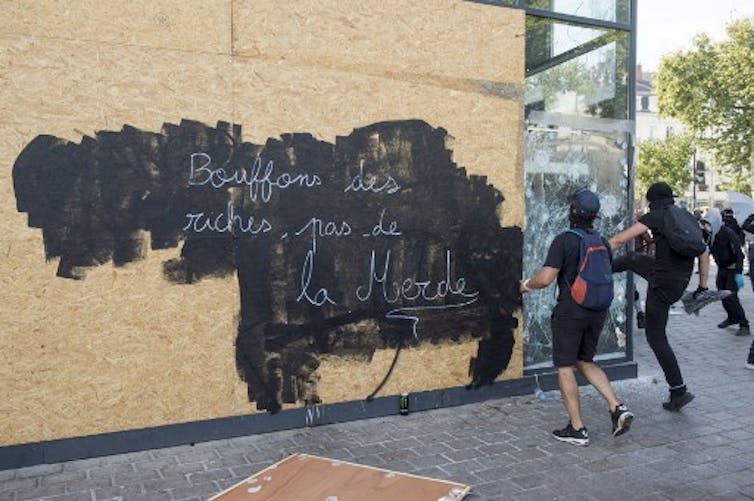 Bouffons des
riches, pas de
la Merde